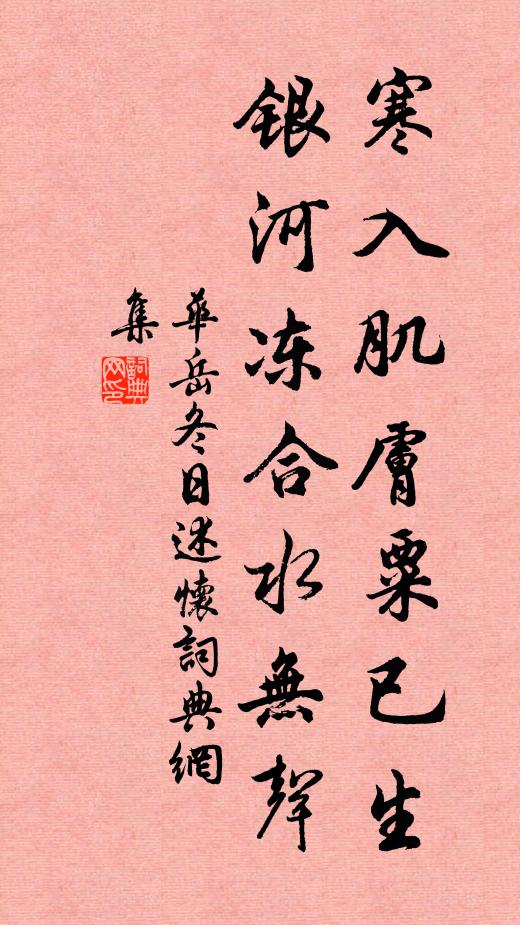 寒入肌膚粟已生
銀河冻合水無聲
華岳冬日述懷詞典網
集
詞典网印